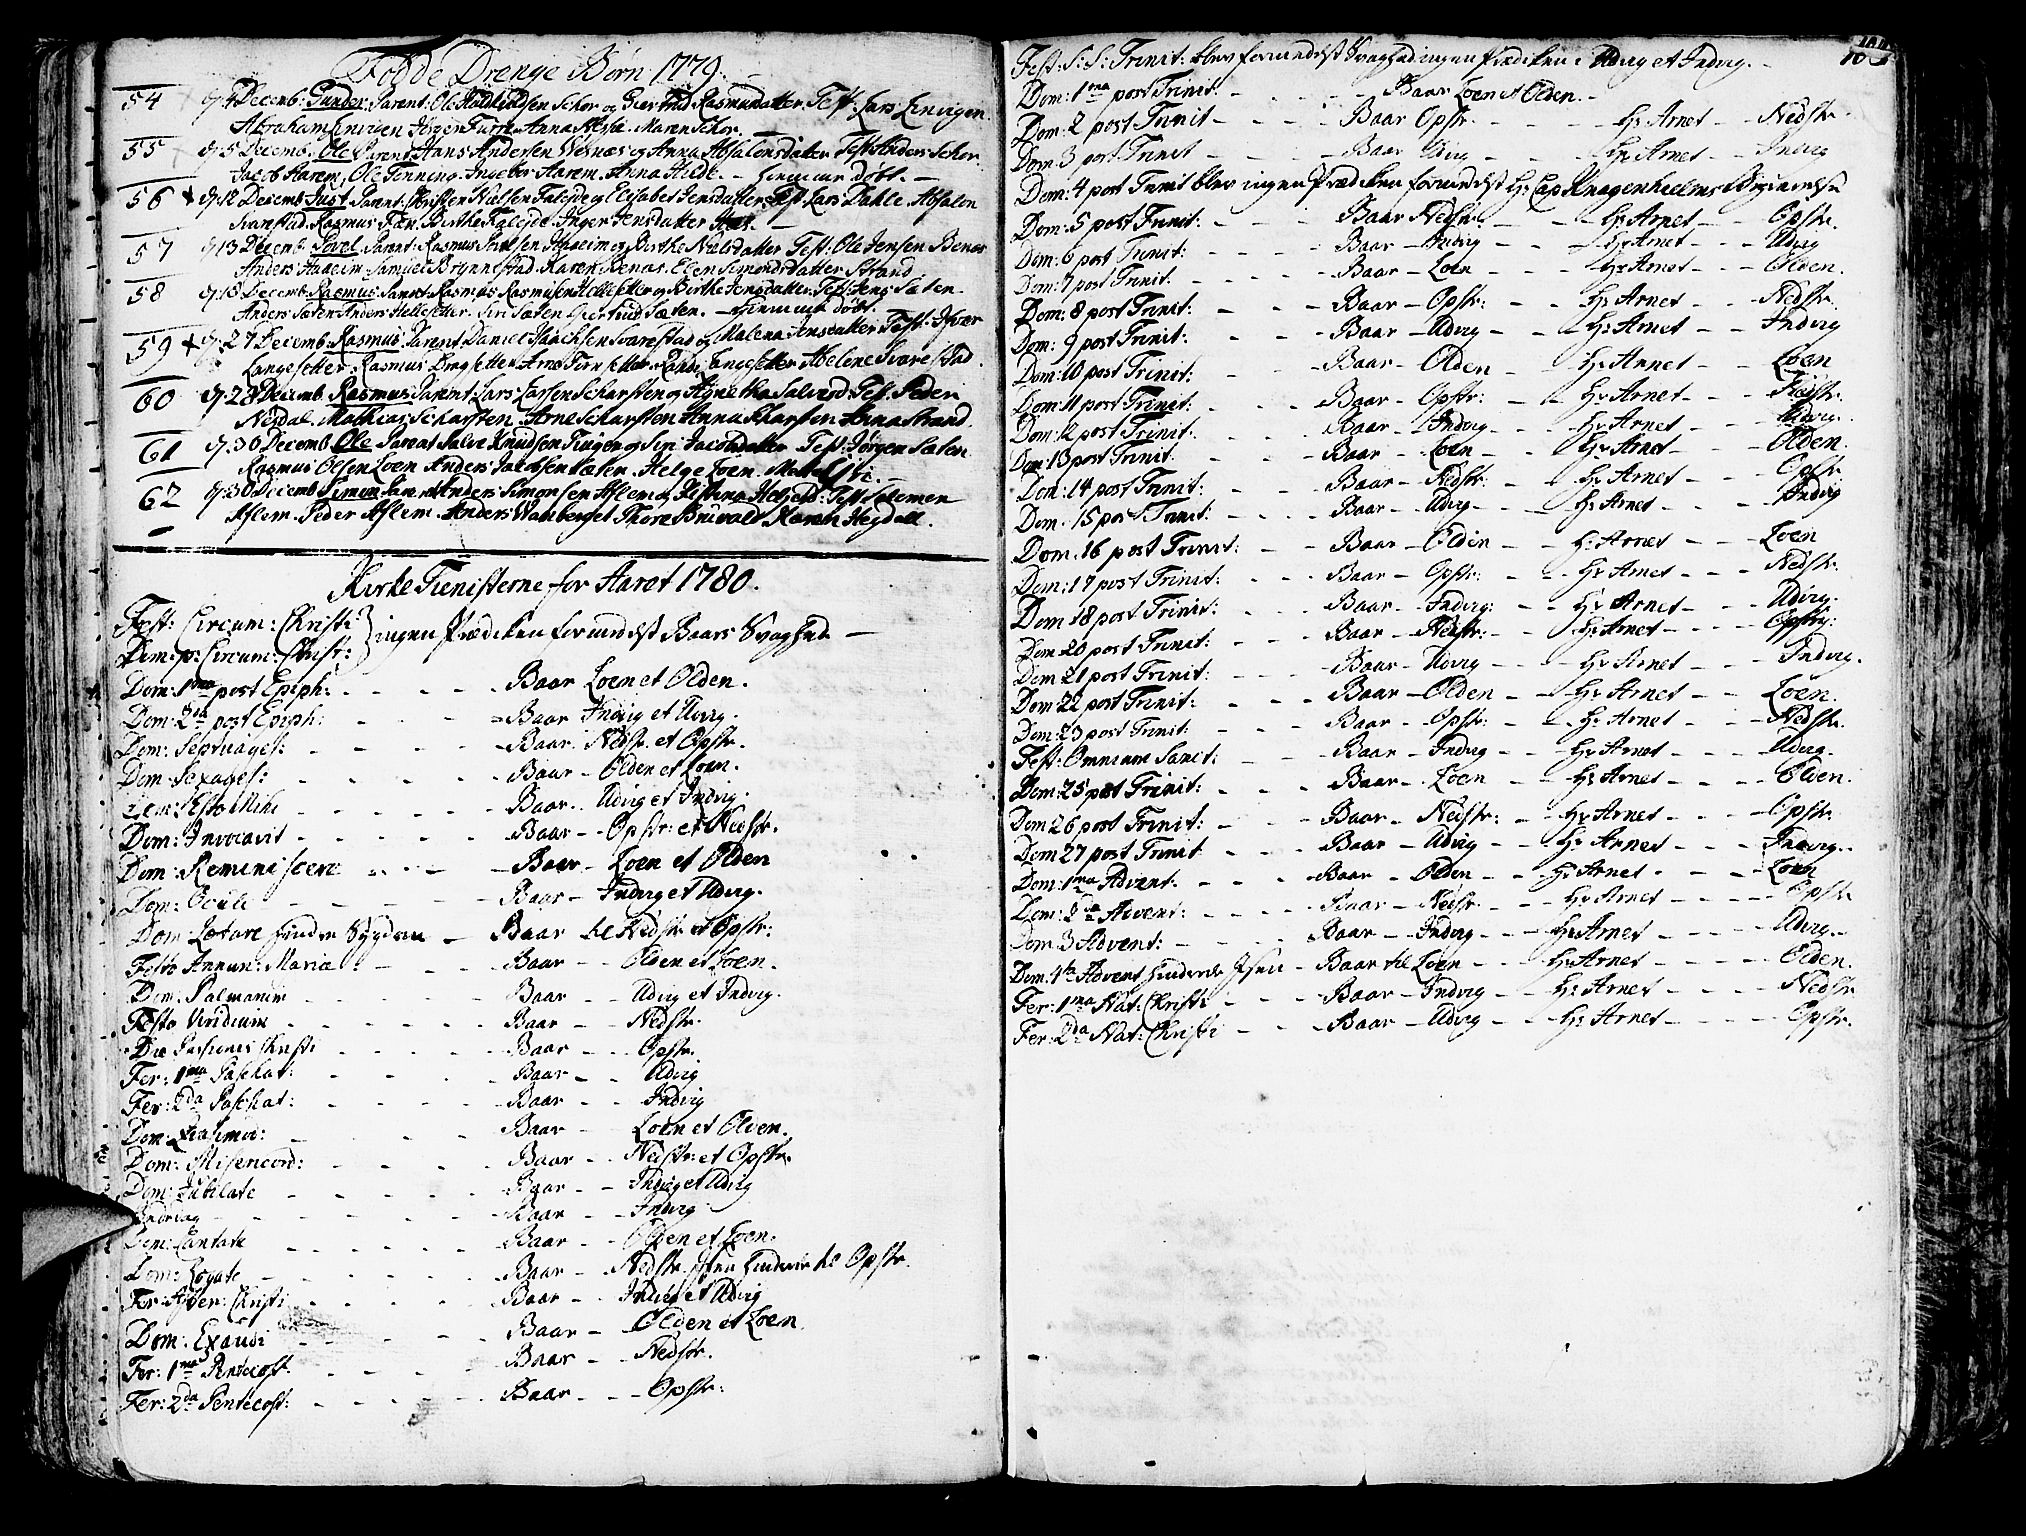 Fødde Drenge Børn 1779.
54 d. 4 Decemb: Gunder. Parent: Ole Schor og Giertrud Rasmusdatter. Test. Lars
Abraham Jørgen Anna Maren Schor.
55 d. 5 Decemb. Ole Parent: Hans Andersen og Anna Absalonsdatter Test. Anders Schor
Jacob Harem, Ole Ingebor Harem, Anna Hilde. — hiemme døbt. —
56 d. 12 Decemb. Just Parent: Christen Nielsen Faleide og Elisabet Jensdatter Test. Lars Dahle. Absalon
Svarstad. Rasmus Birthe Faleide. Inger Jensdatter
57 d. 13 Decemb. Povel. Parent: Rasmus Haaeim og Birthe Nielsdatter Test: Ole Jensen Benas
Anders Haaeim Samuel Brynnestad. Karen Benas. Elen Simonsdatter Strand
58 d. 18 Decemb. Rasmus. Parent. Rasmus Rasmusen Hellesetter og Birthe Jensdatter. Test: Jens Sæten.
Anders Sæten Anders Hellesetter. Siri Sæten Giertrud Sæten. — hiemme døbt.
59 d. 27 Decemb. Rasmus. Parent. Daniel Svarestad og Malena Jensdatter Test: Ifver
Langesetter. Rasmus Langesetter Abelene Svarestad.
60 d. 28 Decemb. Rasmus Parent. Lars Larsen Scharsten og Agnetha Test. Peder
Nesdal. Mathias Scharsten. Arne Scharsten Anna Scharsten Anna Strand
61 d. 30 Decemb. Ole Parent Salve Knudsen Tiugen og Siri Jacobsdatter Test. Jørgen Sæten
Rasmus Olsen Loen Anders Jacobsen Sæten. Helge Loen.
62 d. 30 Decemb Simon Parent Anders Simonsen Aslem og Test Salemon
Aslem. Peder Aslem. Anders Thore Karen Hegdal.
Kirke Tienisterne for Aaret 1780.
Fest: Circum: Christi:
Dom: p: Circum: Christ: } ingen Prædiken formedelst Baars Svaghed —
Dom: 1ma post Epiph: - - - - Baar Loen et Olden.
Dom: 2da post Epiph: - - - - Baar Indvig et Udvig.
Dom: Septuages: - - - - Baar. Nedstr. et Opstr.
Dom. Sexages: - - - - Baar - Olden et Loen.
Dom: Esto Mihi - - - - Baar. Udvig et Indvig.
Dom: Invocavit - - - - Baar - Opstr: et Nedstr.
Dom: Reminiscere - - - Baar - Loen et Olden
Dom: Oculi - - - - Baar - Indvig et Udvig.
Dom: Lætare hindre Sygdom - Baar til Nedstr et Opstr:
Festo Annun: Mariæ: - - - Baar - - Olden et Loen.
Dom. Palmarum - - - - Baar - - Udvig et Indvig.
Festo Viridium - - - - Baar - - Nedstr.
Die Passiones Christi - - - - Baar - - Opstr.
Fer: 1ma Paschat: - - - - Baar - - Udvig
Fer: 2da Paschat: - - - - Baar - - Indvig
Dom: Quasimod: - - - - Baar - - Loen et Olden.
Dom: Misericord: - - - - Baar - - Nedstr: et Opstr.
Dom: Jubilate - - - - Baar - - Indvig et Udvig
- - - - Baar - - Indvig.
Dom: Cantate - - - - Baar - - Olden et Loen.
Dom: Rogate - - - - Baar - - Nedstr. Isen hinderede til Opstr.
Fer: Ascen: Christi - - - - Baar - - Indvig et Udvig
Dom: Exaudi - - - - Baar - Olden et Loen.
Fer: 1ma Pentecost. - - - - Baar - - Nedstr.
Fer: 2da Pentecost: - - - - Baar - - - Opstr:
Fest: S: S: Trinit: blev formedelst Svaghed ingen Prædiken i Udvig et Indvig. -
Dom: 1ma post Trinit. - - - - Baar Loen et Olden. -
Dom: 2 post Trinit - - - - Baar Opstr. - - - Hr Arnet - - Nedstr.
Dom: 3 post Trinit - - - - Baar Udvig - - - Hr Arnet - - Indvig
Dom: 4 post Trinit blev ingen Prædiken formedelst Hr Cap: Knagenhielms Begravelse
Dom: 5 post Trinit: - - - Baar Nedstr. - - Hr: Arnet - - Opstr.
Dom: 6 post Trinit: - - - Baar - Indvig - - Hr Arnet - - Udvig
Dom: 7 post Trinit. - - - Baar - Loen - - Hr Arnet - - Olden.
Dom: 8 post Trinit: - - - Baar - Opstr: - - Hr Arnet - - Nedstr.
Dom: 9 post Trinit: - - - Baar - Udvig - - Hr: Arnet - - Indvig
Dom: 10 post Trinit: - - - Baar - Olden - - Hr: Arnet - - Loen
Dom: 11 post Trinit: - - - Baar - Opstr: - - Hr Arnet - - Nedstr.
Dom: 12 post Trinit. - - - Baar - Indvig - - Hr Arnet - - Udvig.
Dom: 13 post Trinit: - - - Baar - Loen - - Hr Arnet - - Olden
Dom: 14 post Trinit: - - - Baar - Nedstr: - - Hr Arnet - - Opstr
Dom: 15 post Trinit: - - - Baar - Udvig - - Hr Arnet - - Indvig
Dom: 16 post Trinit: - - - Baar - Olden - - Hr: Arnet - - Loen
Dom: 17 post Trinit: - - - Baar - Opstr: - - Hr Arnet - - Nedstr.
Dom 18 post Trinit: - - - Baar - Indvig: - - Hr Arnet - - Udvig.
Dom 20 post Trinit: - - - Baar - Nedstr: - - Hr Arnet - - Opstr:
Dom 21 post Trinit: - - - Baar - Udvig - - Hr Arnet - - Indvig.
Dom 22 post Trinit: - - - Baar - Olden - - Hr Arnet - - Loen.
Dom: 23 post Trinit: - - - Baar - Opstr: - - Hr Arnet - - Nedstr.
Fest: Omnium Sanct: - - - Baar - Indvig - - Hr Arnet - - Udvig.
Dom: 25 post Trinit: - - - Baar - Loen - - Hr Arnet - - Olden.
Dom 26 post Trinit: - - - Baar - Nedstr: - - Hr Arnet - - Opstr.
Dom 27 post Trinit - - - Baar - Udvig - - Hr: Arnet - - Indvig.
Dom: 1ma Advent. - - - Baar - Olden - - Hr Arnet - - Loen
Dom: 2da Advent: - - - Baar - Nedstr. - - Hr Arnet - - Opstr
Dom 3 Advent: - - - Baar - Indvig - - Hr Arnet - - Udvig.
Dom. 4ta Advent hinderede Isen - Baar til Loen - - Hr Arnet - - Olden.
Fer: 1ma Nat: Christi - - - Baar - Indvig - - Hr Arnet - - Nedstr
Fer: 2da Nat: Christi - - - Baar - Udvig - - Hr: Arnet - - Opstr.